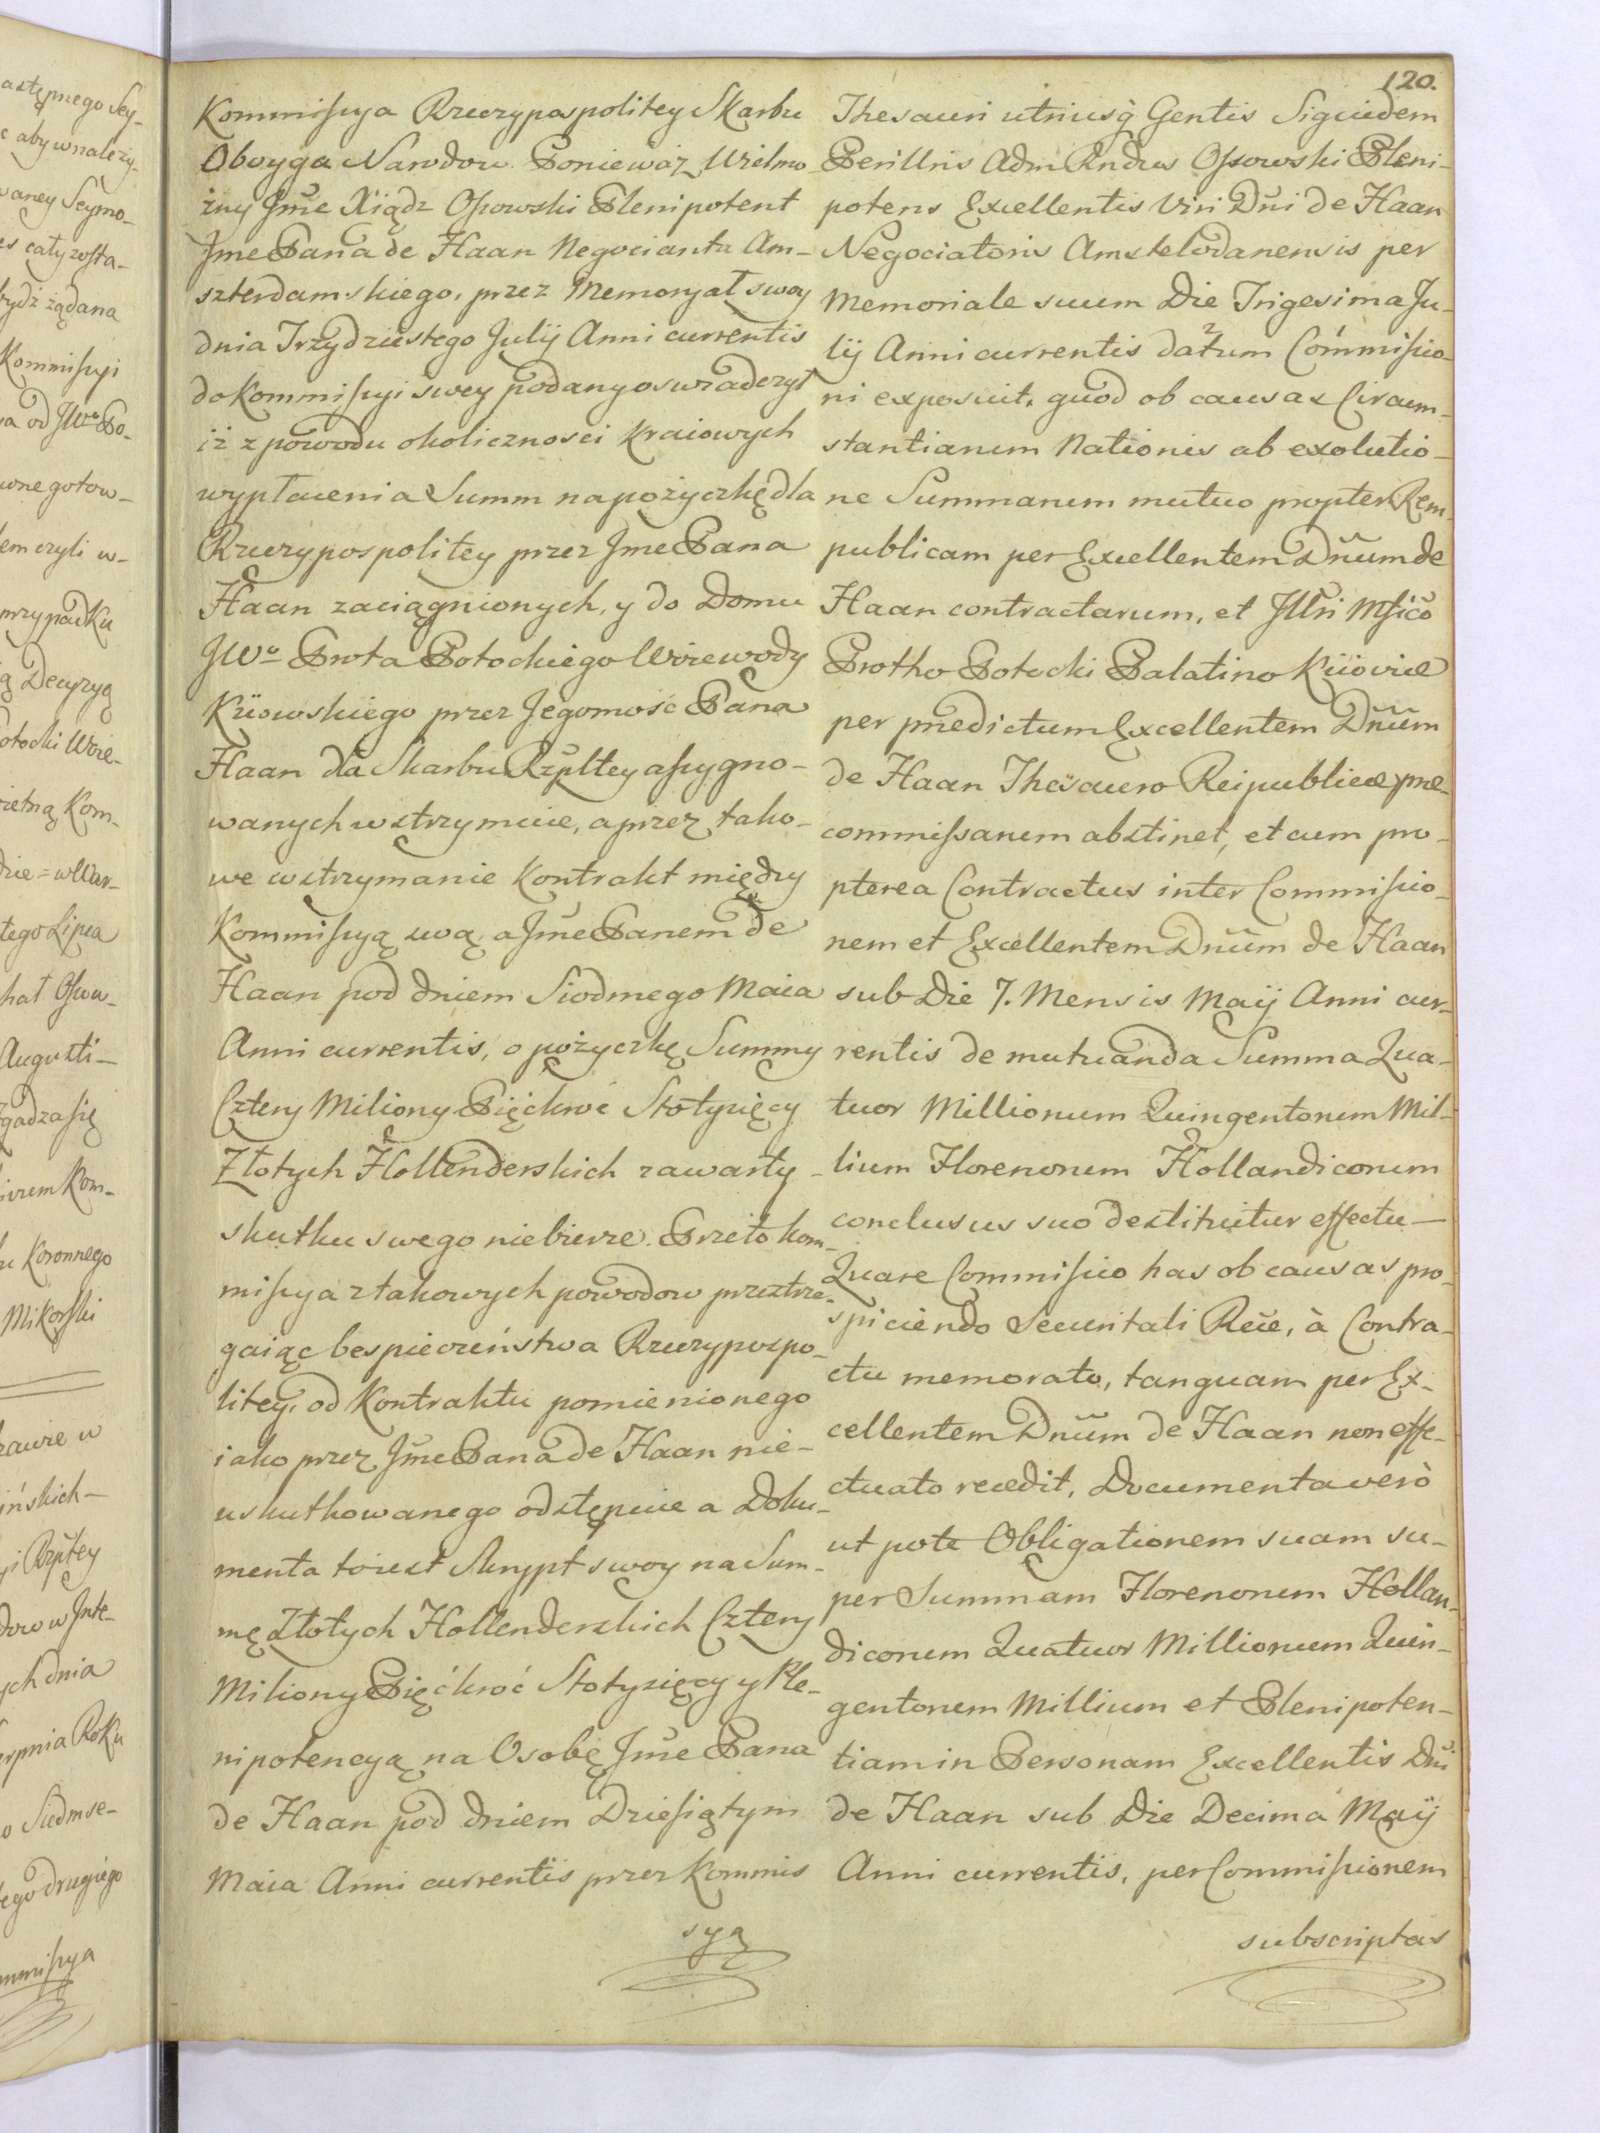 120.
Kommissya Rzeczypospolitey Skarbu
Oboyga Narodow. Poniewáż Wielmo-
żny Jmc Xiądz Ossowski Plenipotent
Jmc Pana de Haan Negocianta Am-
szterdamskiego, przez Memoryał swoy
dnia Trzydziestego Julij Anni currentis
do Kommissyi swey podany oswiadczył
iż z powodu okoliczności Kraiowych
wypłacenia Summ na pożyczkę dla
Rzeczypospolitey przez Jmc Pana
Haan zaciągnionych, y do Domu
JWo Prota Potockiego Woiewody
Kijowskiego przez Jegomość Pana
Haan dla Skarbu Rzpltey assygno-
wanych wstrzymuie, a przez tako-
we wstrzymanie Kontrakt między
Kommissyą swą, a Jmc Panem de
Haan pod dniem Siodmego Maia
Anni currentis, o pożyczkę Summy
Cztery Miliony Pięćkroć Stotysięcy
Złotych Hollenderskich zawarty
skutku swego niebierze. Przeto Kom-
missya z takowych powodow przestrze-
gaiąc bespieczeństwa Rzeczypospo-
litey, od Kontraktu pomienionego
iako przez Jmc Pana de Haan nie-
uskutkowanego odstępuie a Doku-
menta toiest Skrypt swoy na Sum-
mę Złotych Hollenderskich Cztery
Miliony Pięćkroć Stotysięcy y Ple-
nipotencyą na Osobę Jmc Pana
de Haan pod dniem Dziesiątym
Maia Anni currentis przez Kommis
syą
Thesauri utriusq Gentis Siquidem
Perillris Adm Rndus Ossowski Pleni-
potens Excellentis Viri Dni de Haan
Negociatoris Amstelodanensis per
Memoriale suum Die Trigesima Ju-
lij Anni currentis datum Commissio-
ni exposuit, quod ob causas Circum-
stantiarum Nationis ab exolutio-
ne Summarum mutuo propter Rem-
publicam per Excellentem Dnum de
Haan contractarum, et Illri Mfico
Protho Potocki Palatino Kijoviæ
per prædictum Excellentem Dnum
de Haan Thesauro Reipublicæ præ-
commissarum abstinet, et cum pro-
pterea Contractus inter Commissio-
nem et Excellentem Dnum de Haan
sub Die 7. Mensis Maij Anni cur-
rentis de mutuanda Summa Qua-
tuor Millionum Quingentorum Mil-
lium Florenorum Hollandicorum
conclusus suo destituitur effectu —
Quare Commissio has ob causas pro-
spiciendo Securitati Rcæ, à Contra-
ctu memorato, tanquam per Ex-
cellentem Dnum de Haan non effe-
ctuato recedit, Documenta verò
ut pote Obligationem suam su-
per Summam Florenorum Hollan-
dicorum Quatuor Millionum Quin-
gentorum Millium et Plenipoten-
tiam in Personam Excellentis Dni
de Haan sub Die Decima Maij
Anni currentis, per Commissionem
subscriptas